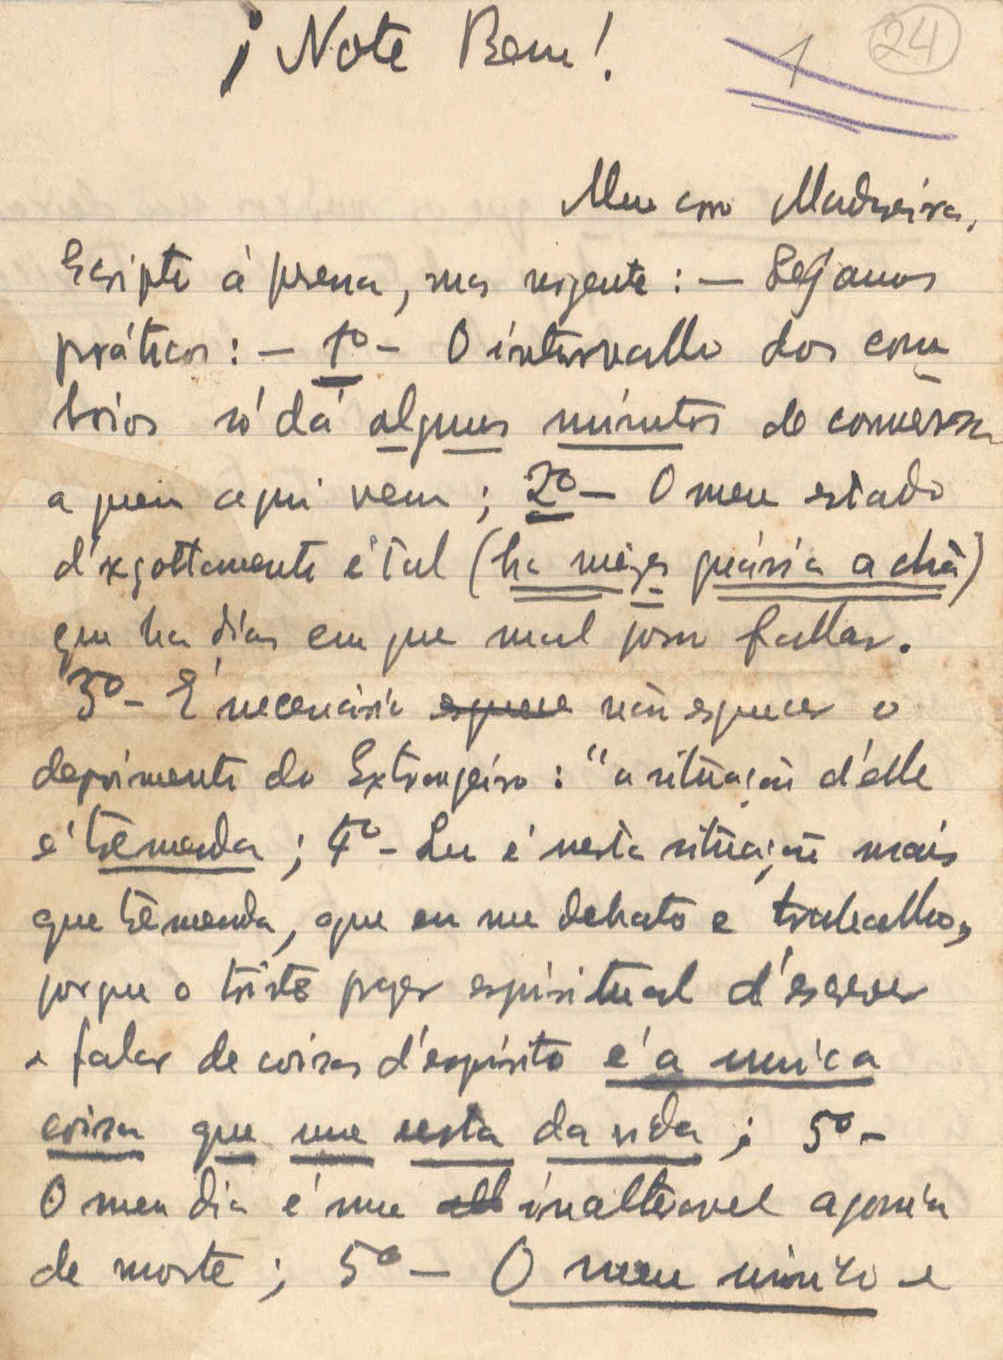 ¡ Note Bem!
1
24
Meu caro Madureira,
Escripto á pressa, mas urgente: —
práticos: — 1º — O intervallo dos com
boios só dá alguns minutos de conversa
a quem aqui vem; 2º — O meu estado
d'exgottamento é tal (ha mezes a chá)
que ha dias em que mal posso fallar.
3º — É necessário esquece não esquecer o
depoimento do Extrangeiro: "a situação d'elle
é tremenda; 4º — É nesta situação mais
que tremenda, que eu me debato e trabalho,
porque o triste prazer espiritual d'escrever
e falar de coisas d'espírito é a unica
coisa que me resta da vida; 5º —
O meu dia é uma inalteravel agonia
de morte; 5º — O meu unico e